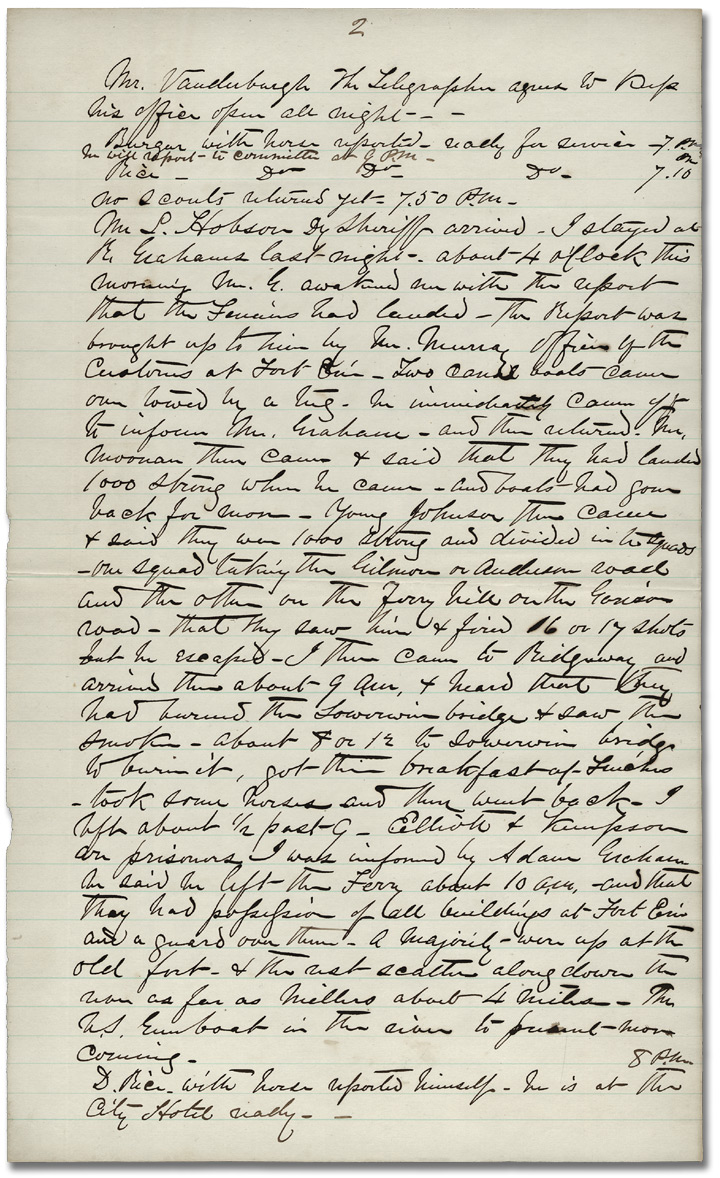 2
Mr. Vanderburgh The Telegrapher agrees to keep
his office open all night - -
Burger with horse reported - ready for service - 7. P.M.
he will report - to committee at 9 P.M. -
Rice - Do - Do - Do - 7.10
no scouts returned yet - 7.50 P.M. -
Mr S. Hobson Dy Sheriff arrived - I stayed at
R. Grahams last night - about 4 o'Clock this
morning Mr. G. awakened me with the report
that the Fenians had landed - The Report was
brought up to him by Mr. Murray Officer of the
Customs at Fort Erie - Two canal boats came
over towed by a tug - he immediately came up
to inform Mr. Graham - and then returned. Mr.
Moonan then came & said that they had landed
1000 strong when he came - and boats had gone
back for more - Young Johnson then came
& said they were 1000 strong and divided in to squads
- one squad taking the Gilmore or Anderson road
and the other on the Ferry hill on the Garrison
road - that they saw him & fired 16 or 17 shots
but he escaped - I then came to Ridgeway and
arrived there about 9 am, & heard that they
had burned the Sowerwin bridge & saw the
smoke - about 8 or 12 to Sowerwin bridge
to burn it, got their breakfast at
- took some horses and then went back - I
left about 1/2 past 9 - Elliott & Kempson
are prisoners, I was informed by Adam Graham
he said he left the Ferry about 10 am, - and that
they had possession of all buildings at Fort Erie
and a guard over them - A Majority - were up at the
old fort - & the rest scatter along down the
river as far as Millers about 4 miles - The
U.S. Gunboat in the river to prevent more
coming -
8 P.M.
D. Rice - with horse reported himself - he is at the
City Hotel ready - -